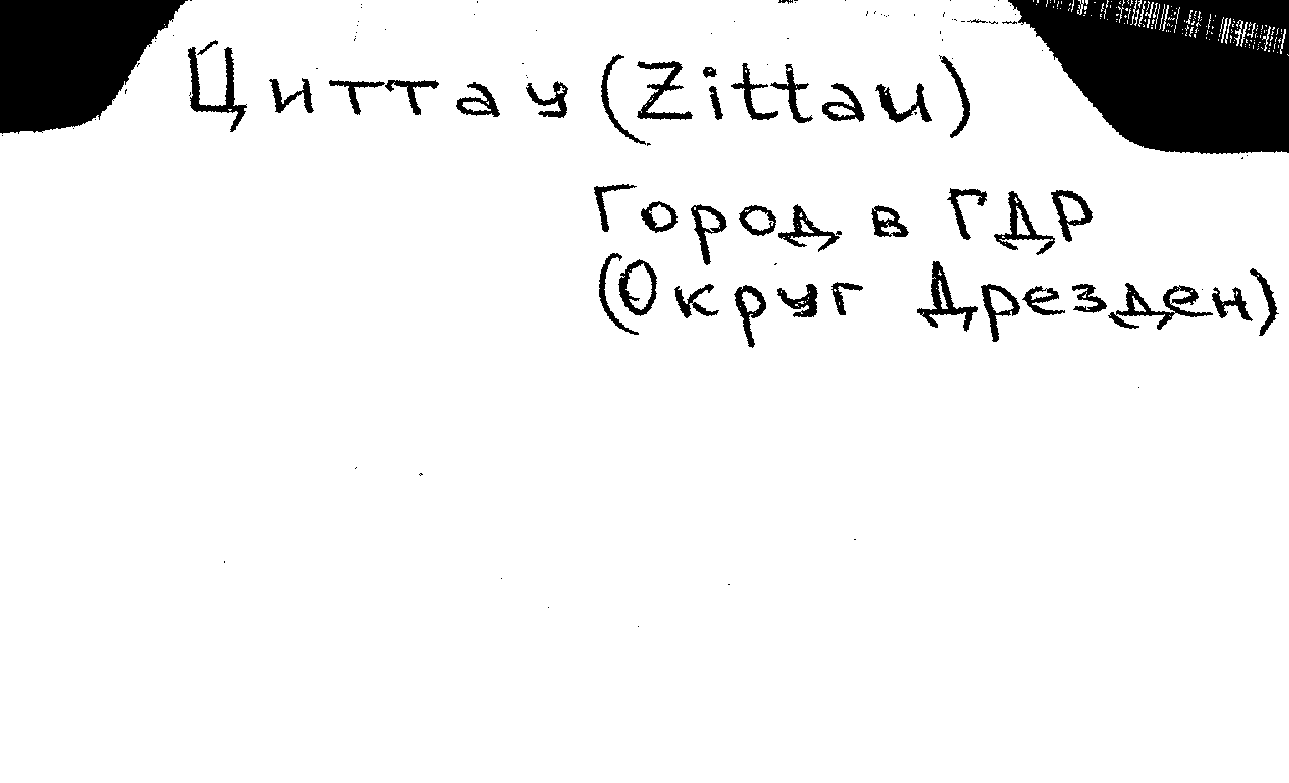 Циттау (Zittau)
Город в ГДР
(Округ Дрезден)